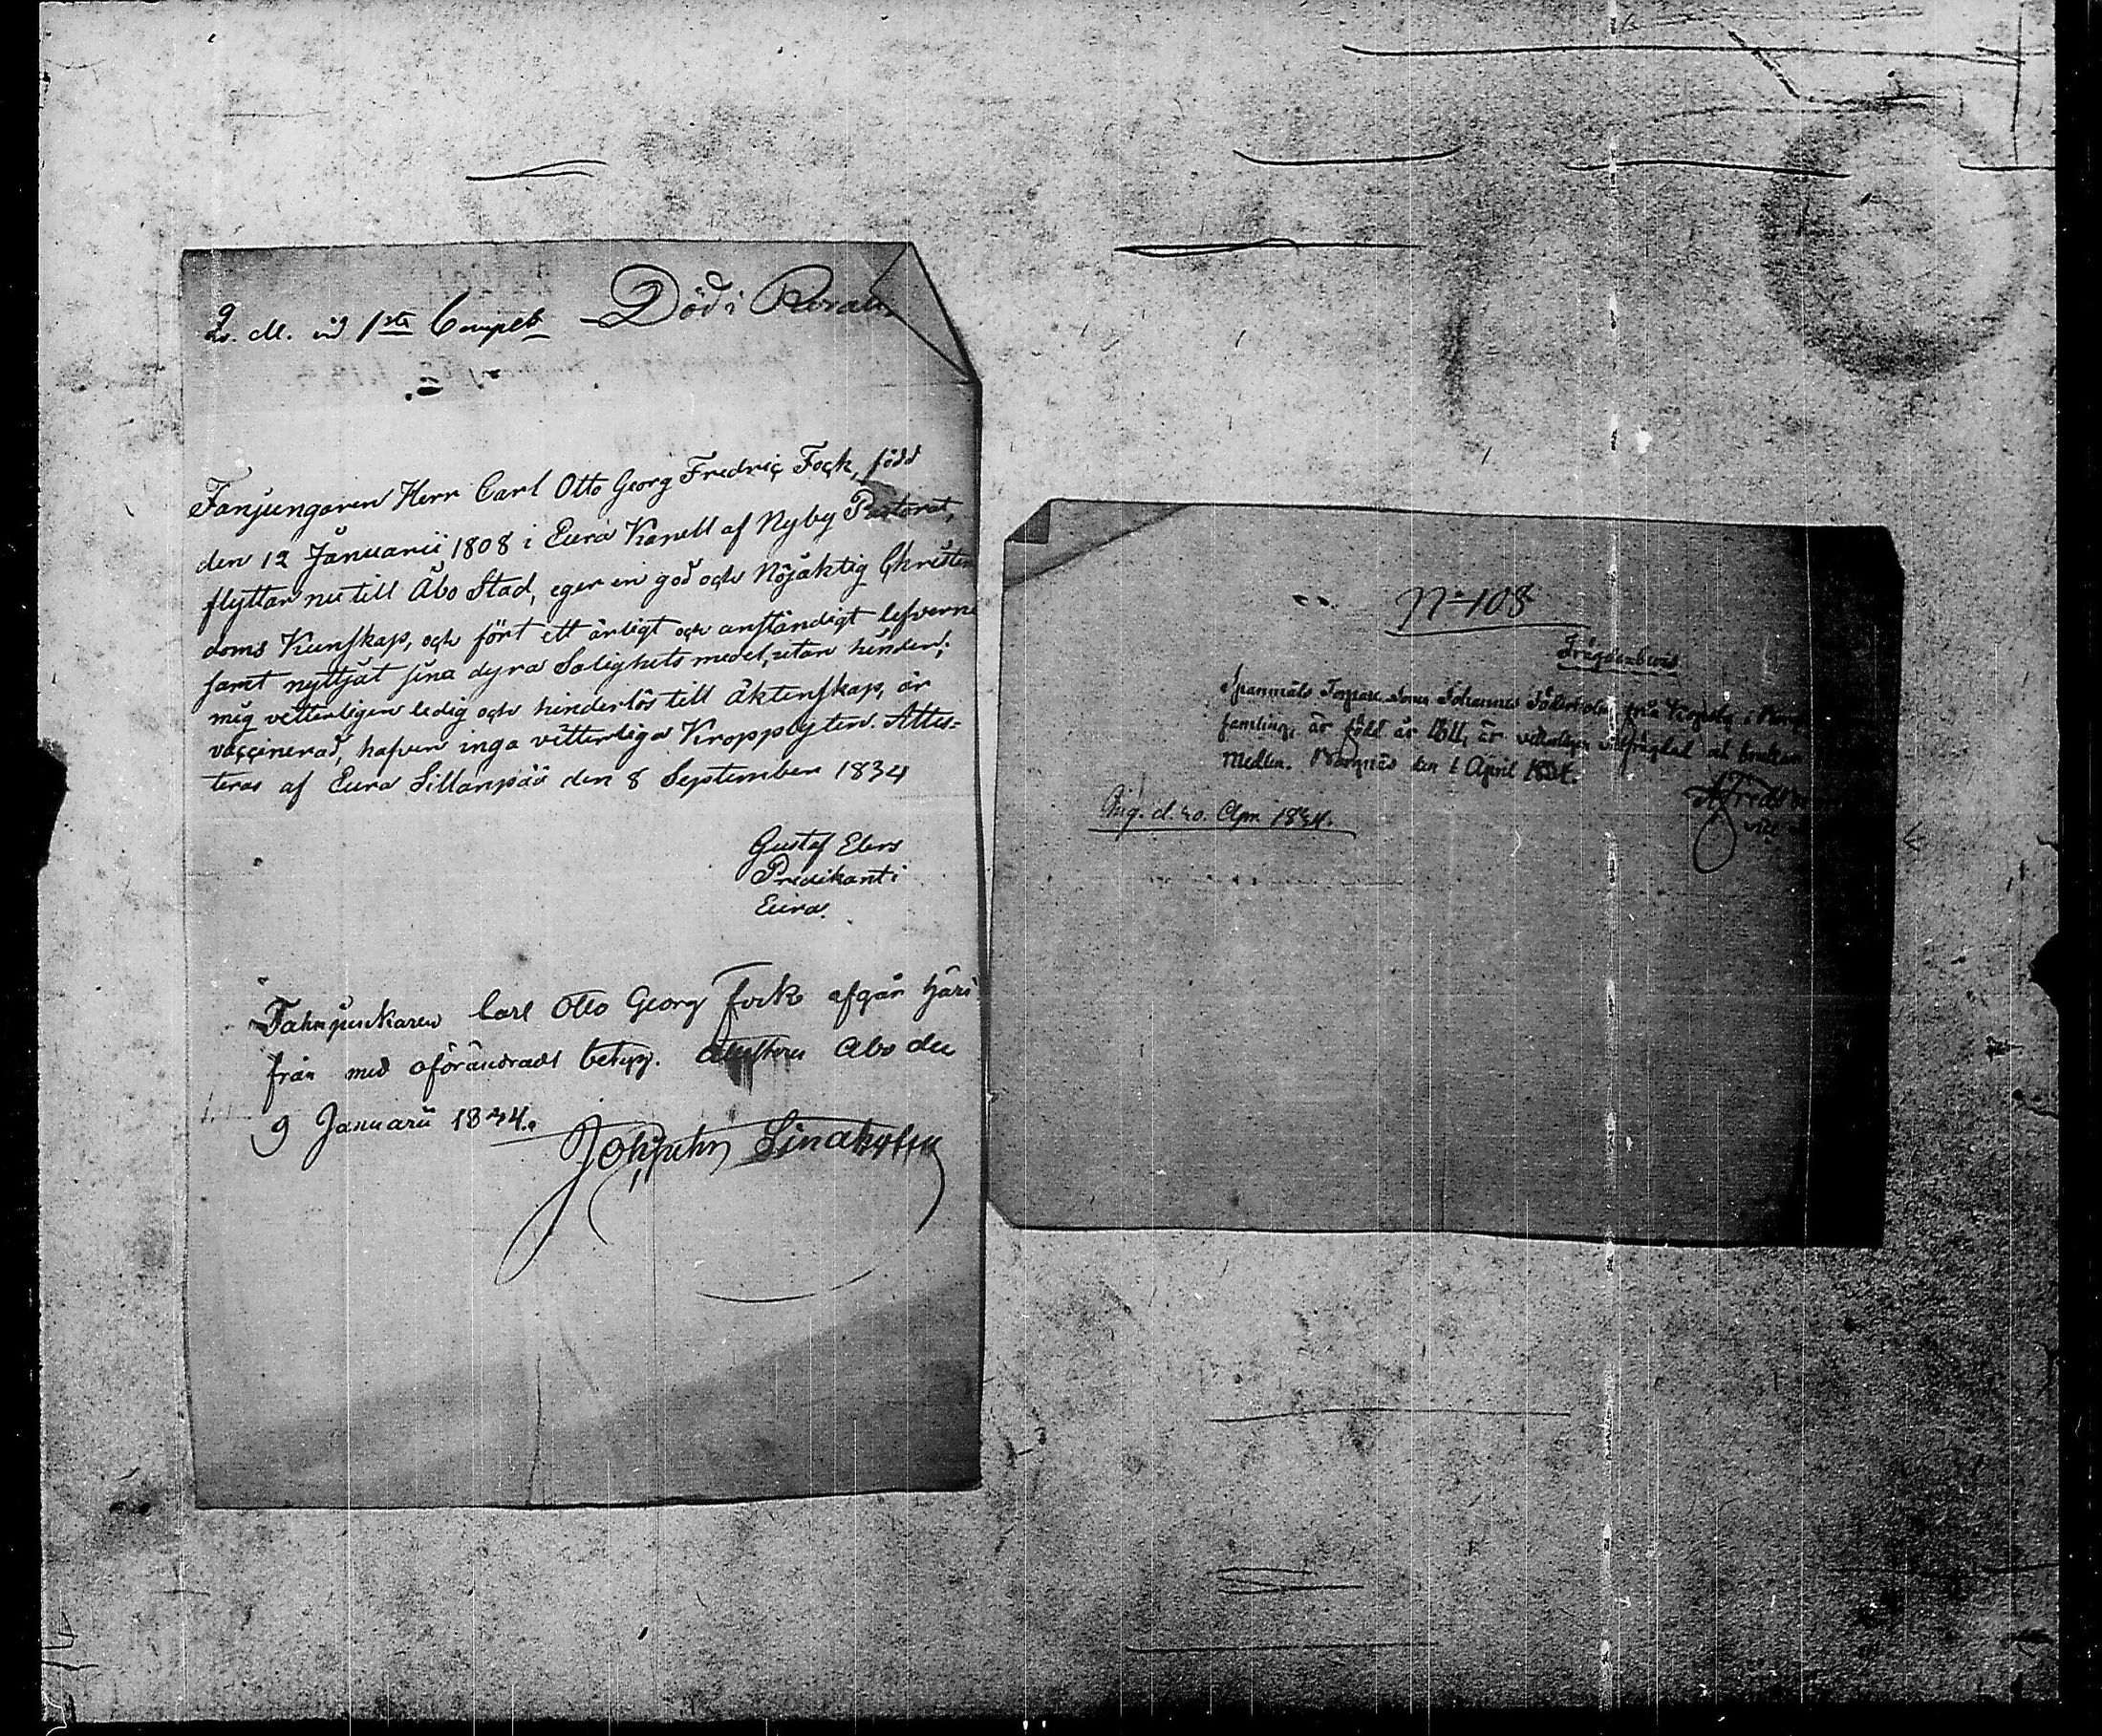 d. M. vid 1sta Compt Död i
Fanjungaren Herr Carl Otto Georg Fredric Fock, född
den 12 Januarii 1808 i Eura Kapell af Nyby Pastorat,
flyttar nu till Åbo Stad, eger en god och Nöjaktig Christen
doms Kunskap, och fört ett ärligt och anständigt lefverne
samt nyttjat sina dyra Salighets medel, utan hinder;
mig vetterligen ledig och hinderlös till äktenskap, är
vaccinerad, hafver inga vetterliga Kropps lyten. Attes-
teras af Eura Sillanpää den 8 September 1834
Gustaf Elers
Predikant i
Eura.
Fahnjunkaren Carl Otto Georg Fock afgår här
från med oförändradt betyg. Åbo den
9 Januarii 1844.
Lindholm
N:o 108
Frägdebevis
Johannes Söderholm från i
samling, är född år 1811, är vetterligen välfrägdad
Medlen. den 1 April 1834.
d. 20. Apr. 1834.